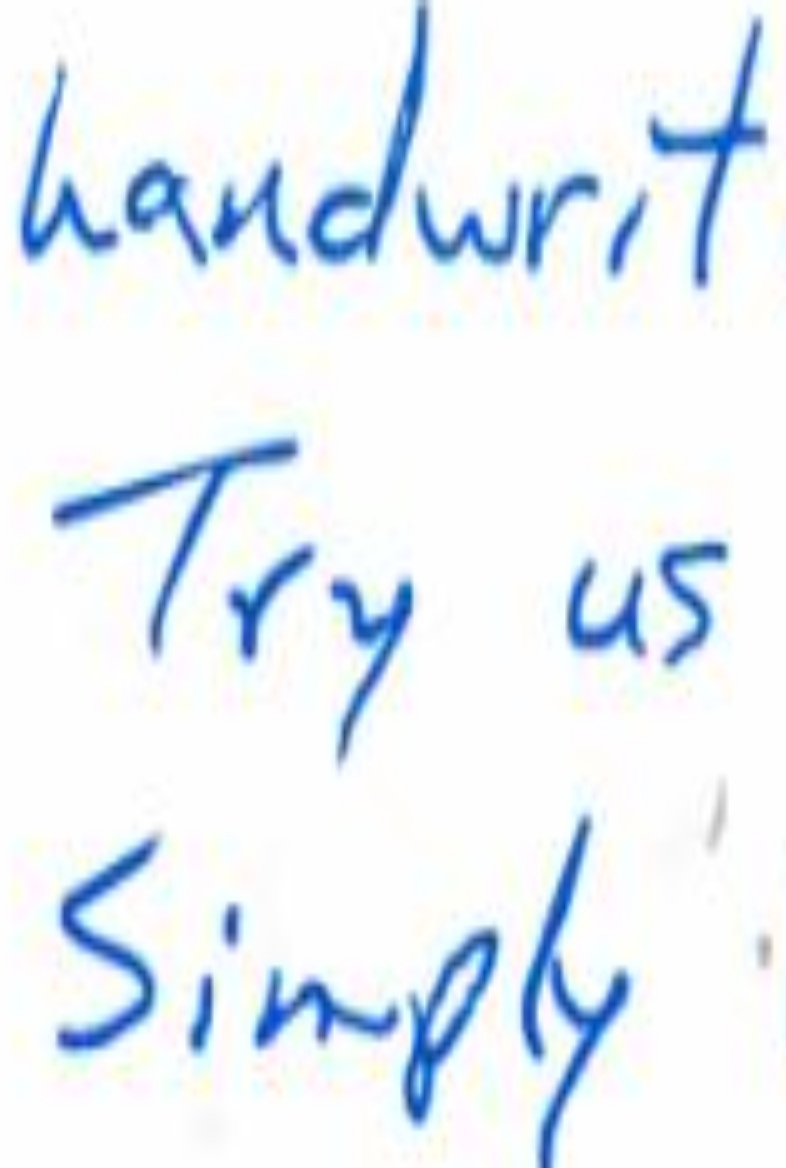 handwrit
Try us
Simply